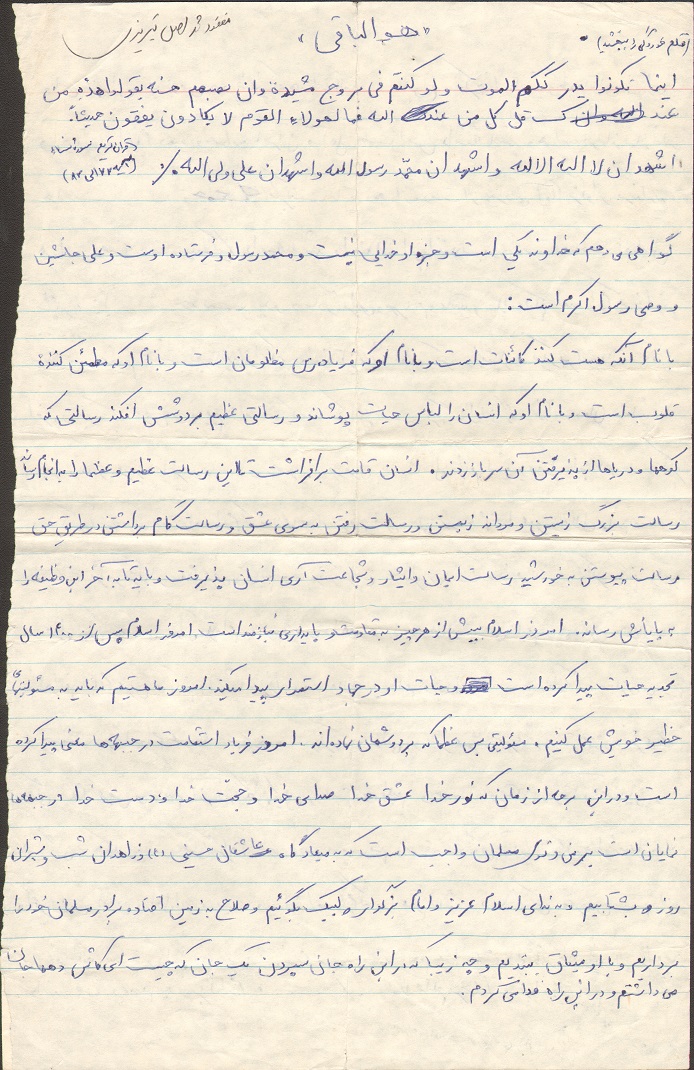 مفقود اصل تبریزی
«هو الباقی»
(قلم خوردگی را ببخشید)
اینما تکونوا یدرککم الموت ولو کنتم فی بروج مشیدة وان تصبهم حسنه یقولوا هذه من
عند الله قل کل من عند الله فما لهولاء القوم لا یکادون یفقهون حدیثاً.
(قرآن کریم سوره نساء
اشهد ان لا اله الا الله و اشهد ان محمّد رسول الله و اشهد ان علی ولی الله ./.
گواهی می دهم که خداوند یکی است و جزء او خدایی نیست و محمد رسول و فرستاده اوست و علی جانشین
و وصی رسول اکرم است:
با نام آنکه هست کنندهٔ کائنات است و با نام او که فریادرس مظلومان است و با نام او که مطمئن کنندهٔ
قلوب است و با نام او که انسان را لباس حیات پوشاند و رسالتی عظیم بر دوشش افکند رسالتی که
کوهها و دریاها از پذیرفتن آن سر باز زدند. انسان قامت برافراشت تا این رسالت عظیم و عظما را به انجام رساند
رسالت بزرگ زیستن و مردانه زیستن و رسالت رفتن به سوی عشق و رسالت گام برداشتن در طریق حق
رسالت پیوستن به خورشید رسالت ایمان و ایثار و شجاعت آری انسان پذیرفت و باید تا به آخر این وظیفه را
به پایانش رساند. امروز اسلام بیش از هر چیز به مقاومت و پایداری نیازمند است. امروز اسلام پس از ۱۴۰۰ سال
تجدید حیات پیدا کرده است و حیات او در جهاد استمرار پیدا میکند. امروز ما هستیم که باید به مسئولیتهای
خطیر خویش عمل کنیم. مسئولیتی بس عظما که بر دوشمان نهاده اند. امروز فریاد استقامت در جبهه ها معنی پیدا کرده
است و در این برهه از زمان که نور خدا عشق خدا صدای خدا و حجّت خدا و دست خدا در جبهه ها
نمایان است بر من و توی مسلمان واجب است که به میعادگاه عاشقان حسینی (ع) و زاهدان شب و شیران
روز بشتابیم و به ندای اسلام عزیز و امام بزرگوار لبیک بگوئیم و سلاح به زمین افتاده برادر مسلمان خود را
برداریم و با او میثاق ببندیم و چه زیبا که در این راه جان سپردن یک جان که چیست ای کاش دهها جان
می داشتم و در این راه فدا می کردم.